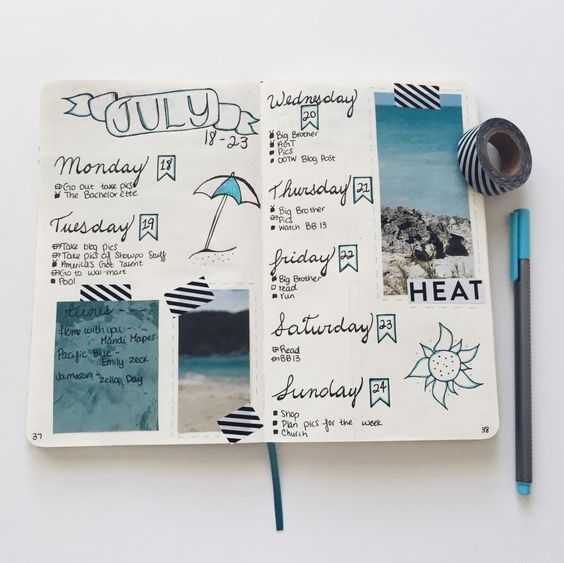 JULY
18-23
Monday 18
Go out take pics
The Bachelorette
Tuesday 19
Take blog pics
Take pics of Showpo Stuff
America's Got Talent
Go to wal-mart
Pool
tunes
Home with you -
Mandi Mapes
Pacific Blue -
Emily zeck
Jameson - zella Day
37
Wednesday
20
Big Brother
AGT
Pics
OOTW Blog Post
Thursday 21
Big Brother
Pics
Watch BB 13
friday 22
Big Brother
read
run
Saturday 23
Read
BB13
Sunday 24
Shop
Plan pics for the week
Church
HEAT
38